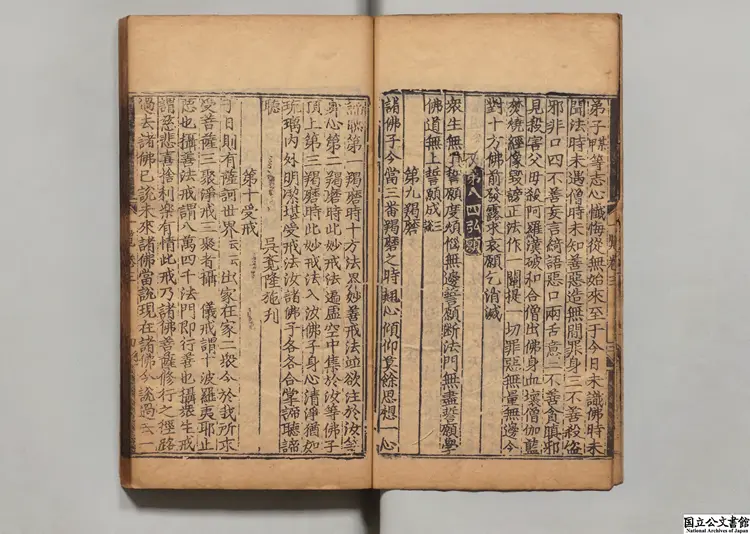 弟子某等志心懺悔從無始來至于今日未識佛時未
聞法時未遇僧時未知善惡造無間罪身三不善殺盜
邪非口四不善妄言綺語惡口兩舌意三不善貪瞋邪
見殺害父母殺阿羅漢破和合僧出佛身血壞僧伽藍
焚燒經像毀謗正法作一闡提一切罪愆無量無邊今
對十方佛前發露求哀願乞消滅
第八四弘願
衆生無邊誓願度煩惱無邊誓願斷法門無盡誓願學
佛道無上誓願成三
第九羯磨
諸佛子今當三番羯磨之時翹心傾仰莫餘思想一心
諦聽第一羯磨時十方法界妙善戒法並欲注於汝等
身心第二羯磨時此妙戒法遍虛空中集於汝等佛子
頂上第三羯磨時此妙戒法入汝佛子身心清淨猶如
琉璃內外明潔堪受戒法汝諸佛子各各合掌諦聽諦
聽 陸施刊
第十受戒
今日則有薩訶世界云云出家在家二衆今於我所求
受菩薩三聚淨戒三聚者攝 儀戒謂十波羅夷耶止
惡也攝善法戒謂八萬四千法門即行善也攝衆生戒
謂慈悲喜捨利樂有情此戒乃諸佛菩薩修行之徑路
過去諸佛已說未來諸佛當說現在諸佛今說過去一
国立公文書館
National Archives of Japan